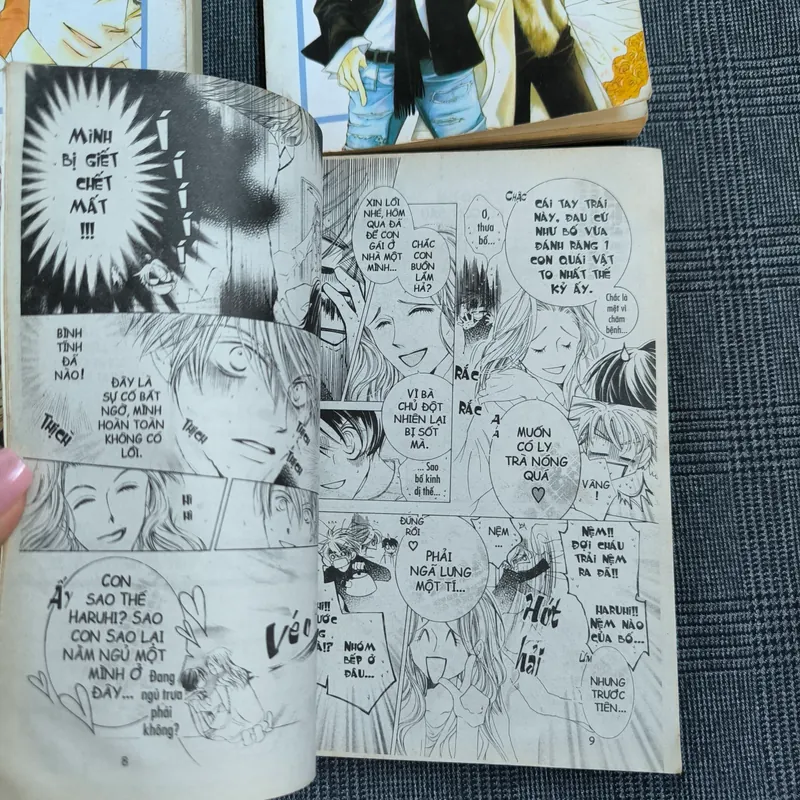 MÌNH
BỊ GIẾT
CHẾT
MẤT
!!!
BÌNH
TĨNH
ĐÃ
NÀO!
ĐÂY LÀ
SỰ CỐ BẤT
NGỜ, MÌNH
HOÀN TOÀN
KHÔNG CÓ
LỖI.
THỊCH
THỊCH
THỊCH
HI
HI
ẤY
CON
SAO THẾ
HARUHI? SAO
CON SAO LẠI
NẰM NGỦ MỘT
MÌNH Ở
ĐÂY...
Đang
ngủ trưa
phải
không?
Véo
8
CHẮC
CÁI TAY TRÁI
NÀY. ĐAU CỨ
NHƯ BỐ VỪA
ĐÁNH RĂNG 1
CON QUÁI VẬT
TO NHẤT THẾ
KỶ ẤY.
Ơ,
thưa
bố...
XIN LỖI
NHÉ, HÔM
QUA ĐÃ
ĐỂ CON
GÁI Ở
NHÀ MỘT
MÌNH...
CHẮC
CON
BUỒN
LẮM
HẢ?
Chắc là
mệt vì
chăm
bệnh...
RẮC
RẮC
VÌ BÀ
CHỦ ĐỘT
NHIÊN LẠI
BỊ SỐT
MÀ.
... Sao
bố kinh
dị thế...
Á
Á
MUỐN
CÓ LY
TRÀ NÓNG
QUÁ
VÂNG!
NỆM!!
ĐỢI CHÁU
TRẢI NỆM
RA ĐÃ!!
HARUHI!
NỆM NÀO
CỦA BỐ...
NỆM...
ĐÚNG
RỒI
PHẢI
NGÃ LƯNG
MỘT TÍ...
NHÓM
BẾP Ở
ĐÂU...
Hớt
hải
NHƯNG
TRƯỚC
TIÊN...
9